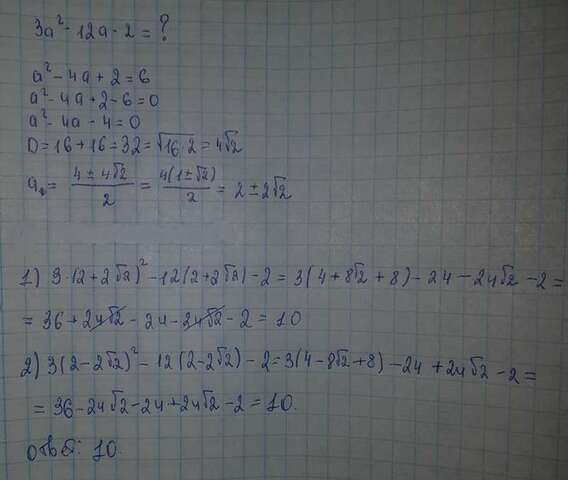 3a² - 12a - 2 = ?
a² - 4a + 2 = 6
a² - 4a + 2 - 6 = 0
a² - 4a - 4 = 0
D = 16 + 16 = 32 = √16·2 = 4√2
a = (4 ± 4√2)/2 = 4(1 ± √2)/2 = 2 ± 2√2
1) 3·(2 + 2√2)² - 12(2 + 2√2) - 2 = 3(4 + 8√2 + 8) - 24 - 24√2 - 2 =
= 36 + 24√2 - 24 - 24√2 - 2 = 10
2) 3(2 - 2√2)² - 12(2 - 2√2) - 2 = 3(4 - 8√2 + 8) - 24 + 24√2 - 2 =
= 36 - 24√2 - 24 + 24√2 - 2 = 10.
Ответ: 10.